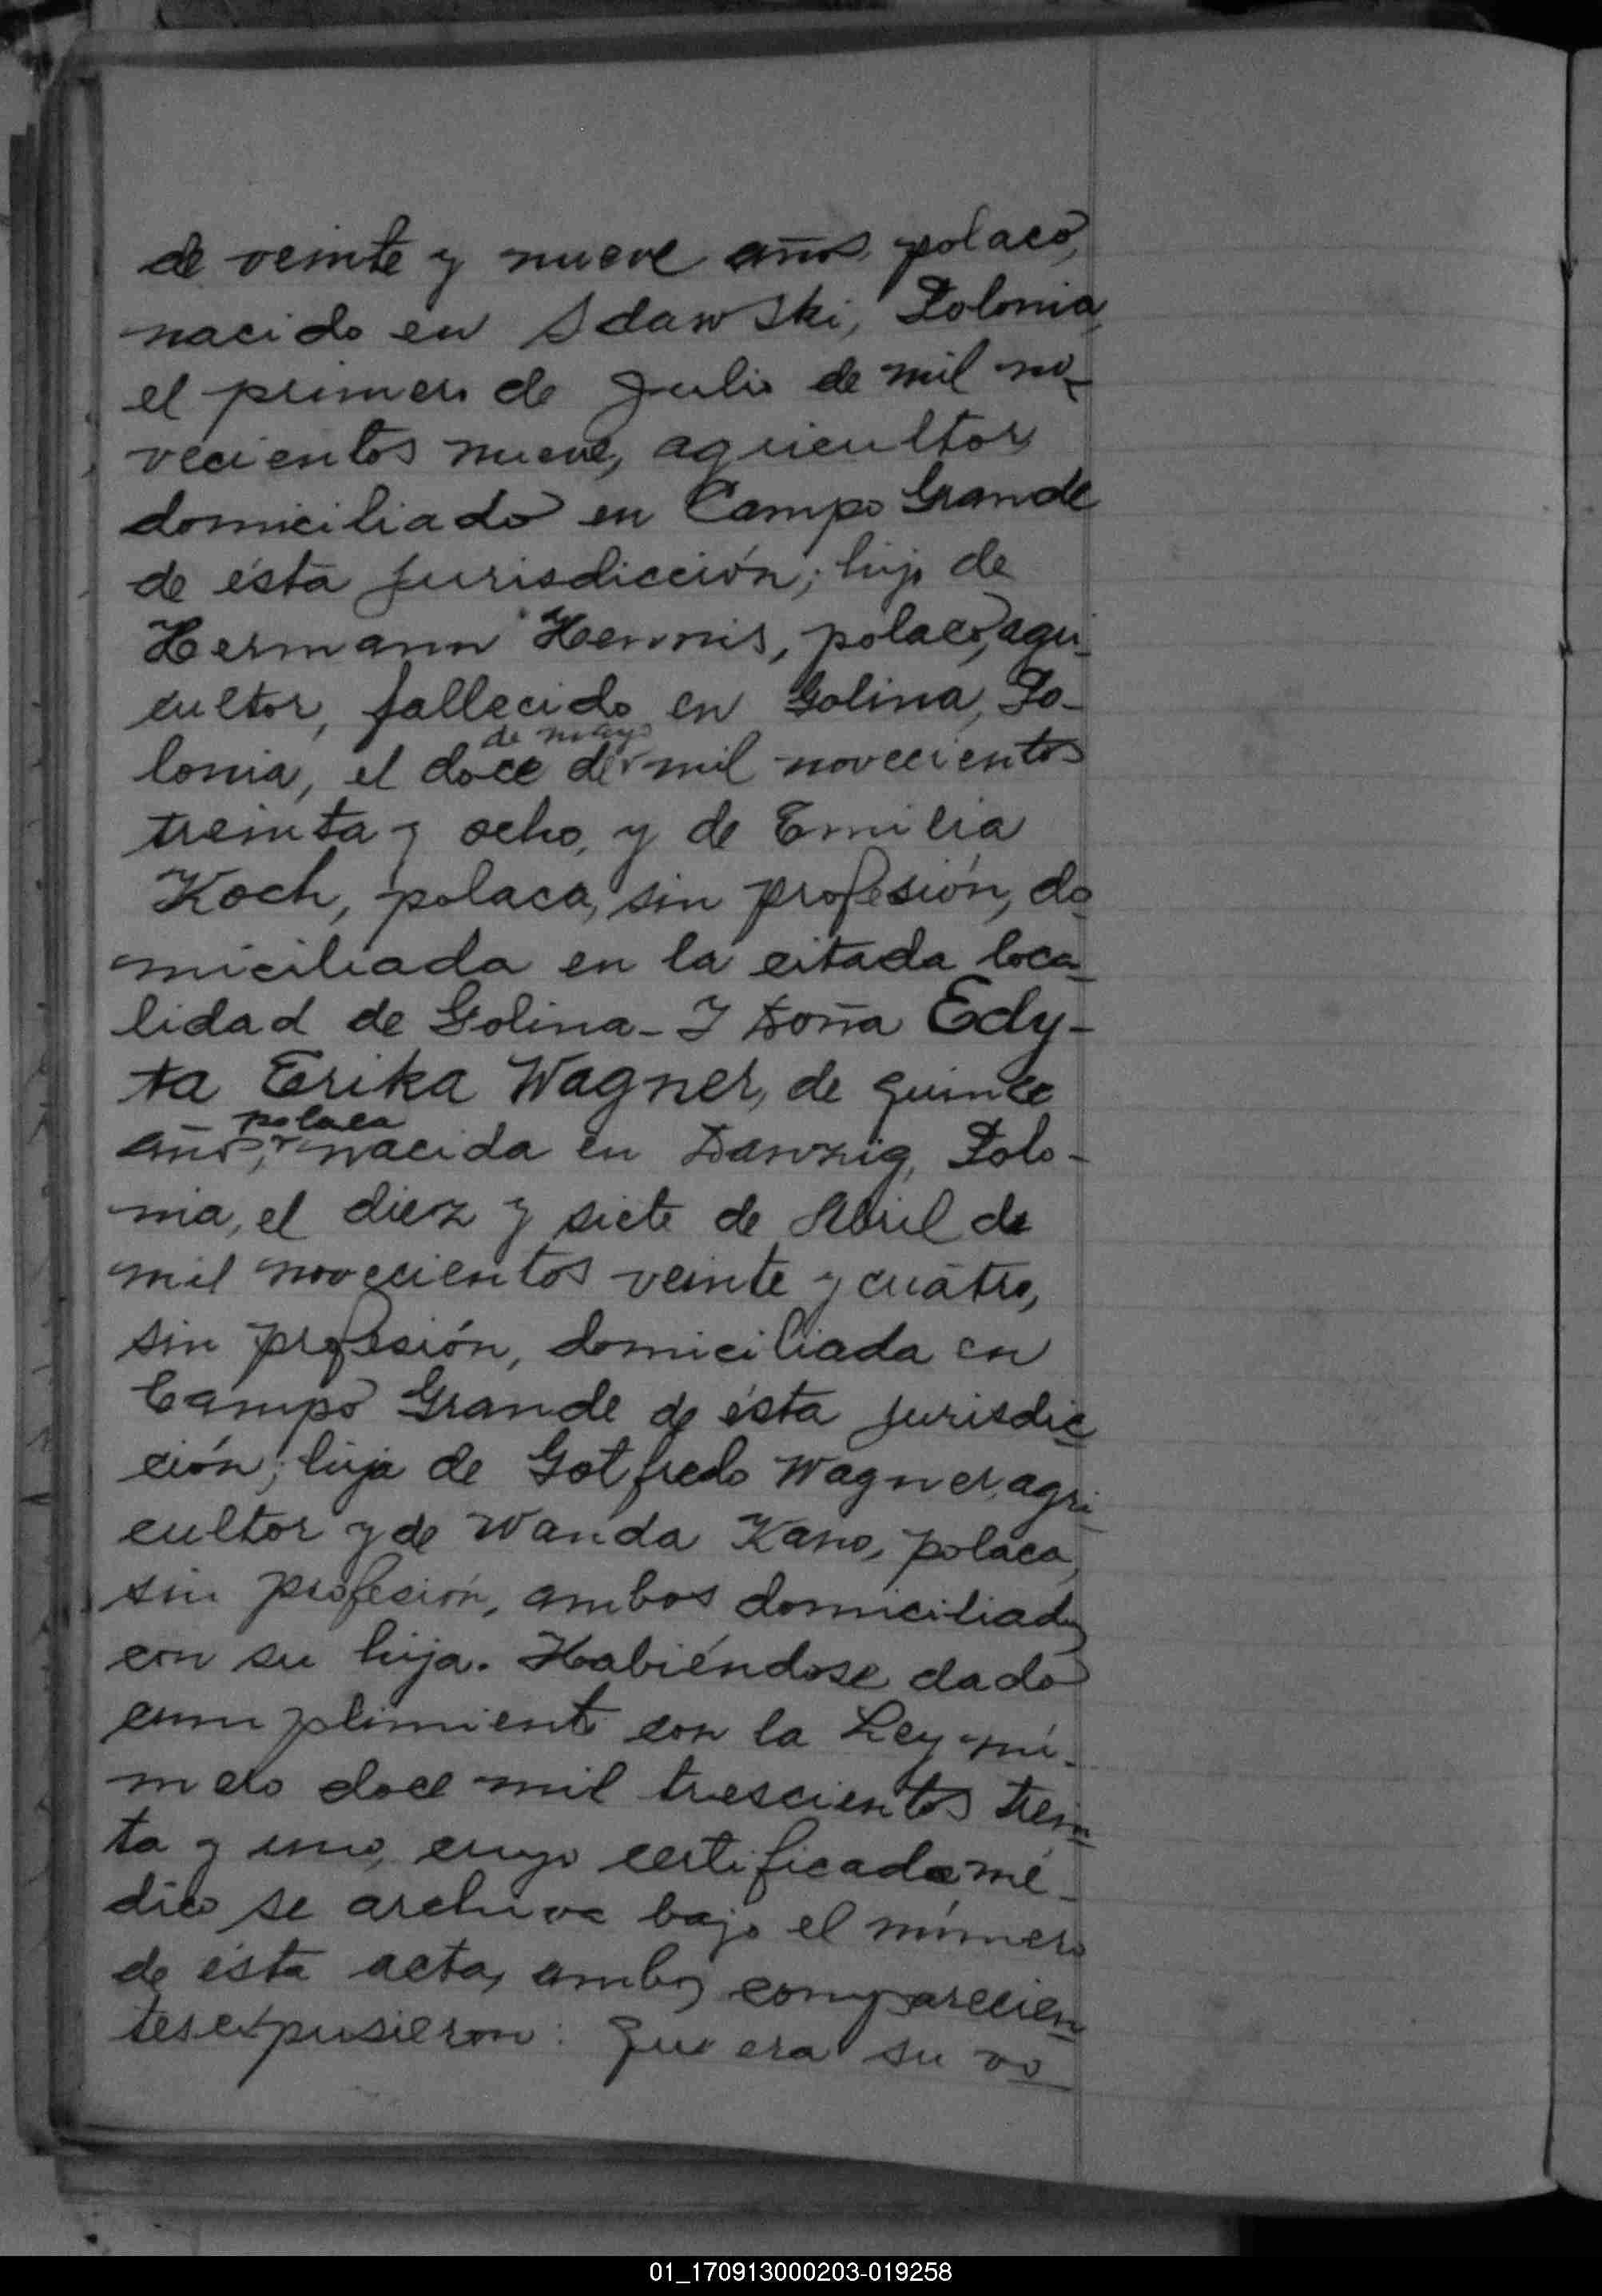 de veinte y nueve años, polaco,
nacido en Sdawski, Polonia,
el primero de Julio de mil no-
vecientos nueve, agricultor
domiciliado en Campo Grande
de ésta jurisdicción; hijo de
Hermann Hennis, polaco, agri-
cultor, fallecido en Golina, Po-
de mayo
lonia, el doce de mil novecientos
treinta y ocho, y de Emilia
Koch, polaca, sin profesión, do-
miciliada en la citada loca-
lidad de Golina- Y Doña Edy-
ta Erika Wagner, de quince
polaca
años, nacida en Danzig, Polo-
nia, el diez y siete de Abril de
mil novecientos veinte y cuatro,
sin profesión, domiciliada en
Campo Grande de ésta jurisdic-
ción; hija de Gotfredo Wagner, agri-
cultor y de Wanda Kano, polaca,
sin profesión, ambos domiciliados
con su hija. Habiéndose dado
cumplimiento con la Ley nú-
mero doce mil trescientos trein-
ta y uno, cuyo certificado mé-
dico se archiva bajo el número
de ésta acta, ambos comparecien-
tes expusieron: Que era su vo-
01_170913000203-019258